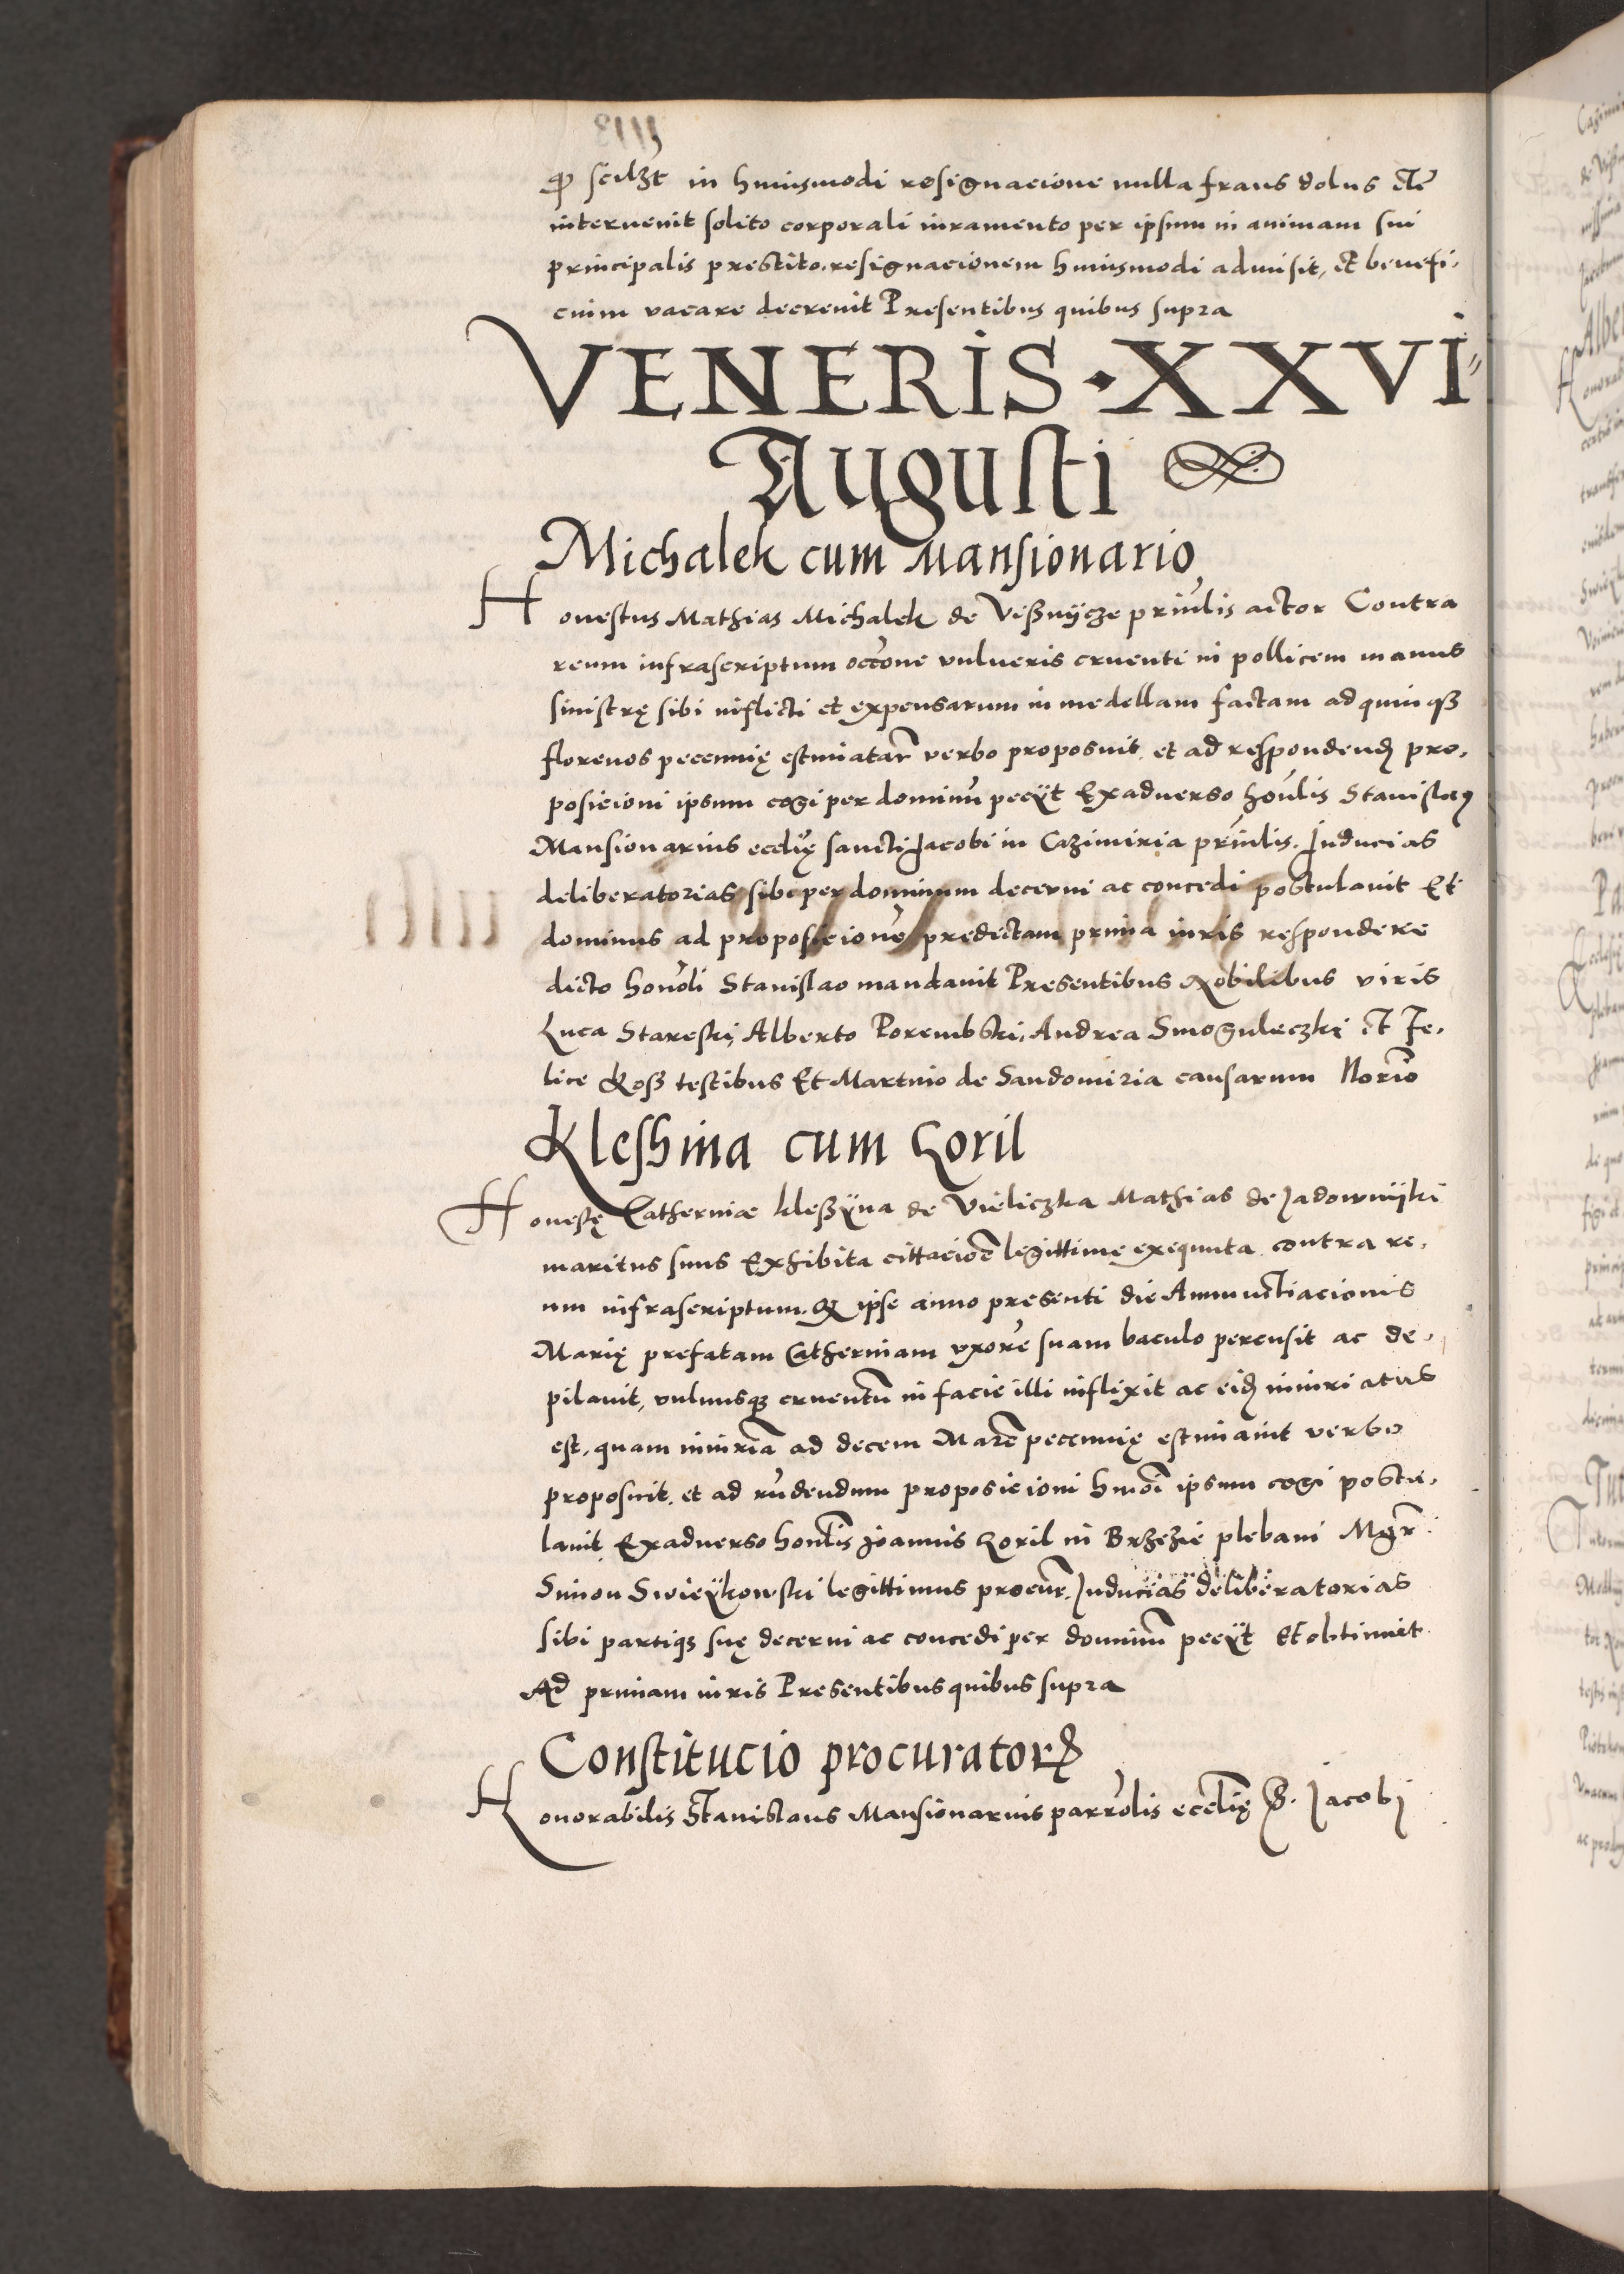 ꝙ scilꝫt in huiusmodi resignacione nulla fraus dolus etc̄
interuenit solito corporali iuramento per ipsum in animam sui
principalis prestito. resignacionem huiusmodi admisit, et benefi,
cium vacare decreuit Presentibus quibus supra
VENERIS · XXVI
Augusti
Michalek cum Mansionario
Honestus Mathias Michalek de Vißnycze prinͥlis actor Contra
reum infrascriptum occōne vulneris cruenti in pollicem manus
sinistrę sibi inflicti et expensarum in medellam factam ad quinqꝫ
florenos pecunię estimatar̄ verbo proposuit. et ad respondendū pro,
posicioni ipsum cogi per dominū peciit Exaduerso honͥlis Stanislaꝰ
Mansionarius ecclię sancti Jacobi in Cazimiria prinͥlis. Inducias
deliberatorias sibi per dominum decerni ac concedi postulauit Et
dominus ad proposicionē predictam prima iuris respondere
dicto honoͥli Stanislao mandauit Presentibus Nobilibus viris
Luca Stareski, Alberto Porembski, Andrea Smoguleczki et Fe,
lice Koß testibus Et Martino de Sandomiria causarum Norͥio
Kleshina cum Goril
Honestę Catherinæ kleßyna de Vieliczka Mathias de Jadownijki
maritus suus Exhibita cittacioē legittime exequuta contra re,
um infrascriptum. Q ipse anno presenti die Annunctiacionis
Marię prefatam Catherinam vxorē suam baculo percusit ac de,
pilauit, vulnusqꝫ cruentū in facie illi inflixit ac eidē iniuriatus
est, quam iniuriā ad decem Marc̄ pecunię estimauit verbo
proposuit. et ad rn̄dendum proposicioni hmōi ipsum cogi postu,
lauit. Exaduerso honͥlis Joannis Goril in Brzezie plebani Mgr̄
Simon Swieykowski legittimus procur̄. Inducias deliberatorias
sibi partiqꝫ suę decerni ac concedi per dominū peciit Et obtinuit
Ad primam iuris Presentibus quibus supra
Constitucio procuratorꝝ
Honorabilis Stanislaus Mansionarius parrolis ecclię S. Jacobj